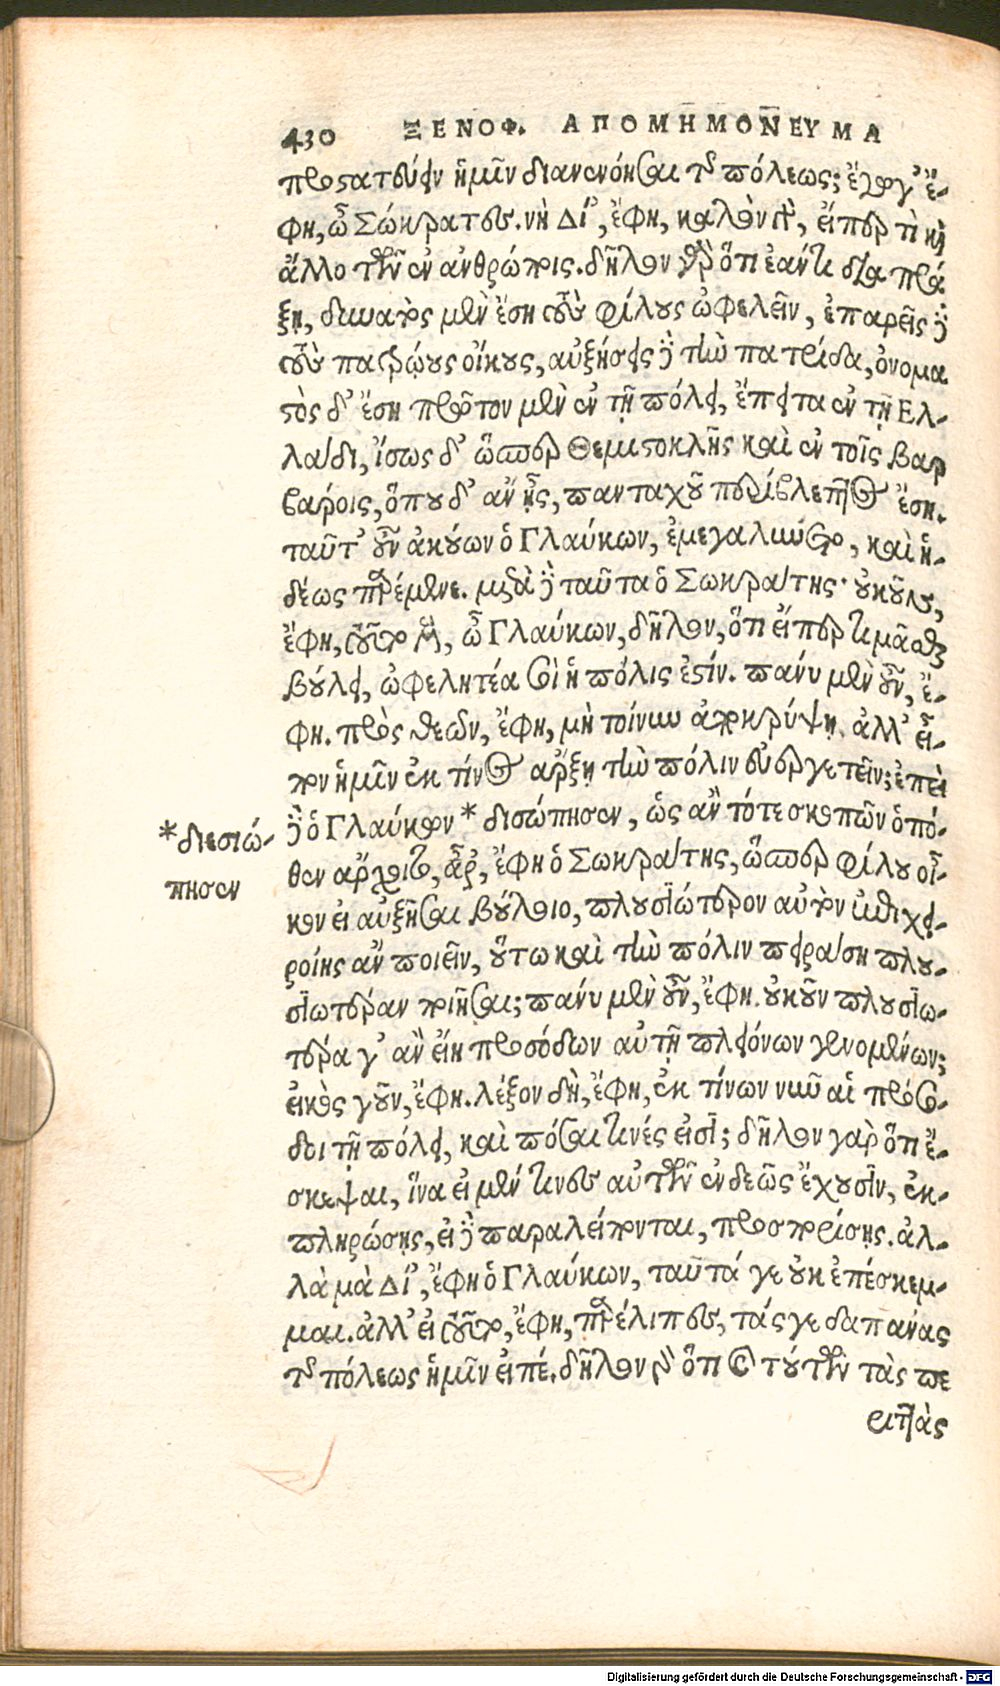 430 ΞΕΝΟΦ. ΑΠΟΜΗΜΟΝΕΥΜΑ
προστατεύειν ἡμῖν διανενόησαι τῆς πόλεως; ἔγωγ' ἔ-
φη, ὦ Σώκρατες. νὴ Δί', ἔφη, καλὸν γὰρ, εἴπερ τὶ καὶ
ἄλλο τῶν ἐν ἀνθρώποις. δῆλον γὰρ ὅτι ἐάν τι διαπρά
ξῃ, δυνατὸς μὲν ἔσῃ τοὺς φίλους ὠφελεῖν, ἐπαρεῖς δὲ
τοὺς πατρῴους οἴκους, αὐξήσεις δὲ τὴν πατρίδα, ὀνομα
στὸς δ' ἔσῃ πρῶτον μὲν ἐν τῇ πόλει, ἔπειτα ἐν τῇ Ελ-
λάδι, ἴσως δ' ὥσπερ Θεμιστοκλῆς καὶ ἐν τοῖς βαρ
βάροις, ὅπου δ' ἂν ᾖς, πανταχοῦ περίβλεπτος ἔσῃ.
ταῦτ' οὖν ἀκούων ὁ Γλαύκων, ἐμεγαλύνετο, καὶ ἡ-
δέως παρέμενε. μετὰ δὲ ταῦτα ὁ Σωκράτης· οὐκοῦν,
ἔφη, τοῦτο μὲν, ὦ Γλαύκων, δῆλον, ὅτι εἴπερ τιμᾶσθαι
βούλει, ὠφελητέα σοὶ ἡ πόλις ἐστίν. πάνυ μὲν οὖν, ἔ-
φη. πρὸς θεῶν, ἔφη, μὴ τοίνυν ἀποκρύψῃ, ἀλλ' εἶ-
πον ἡμῖν ἐκ τίνος ἄρξῃ τὴν πόλιν εὐεργετεῖν; ἐπεὶ
δὲ ὁ Γλαύκων * διεσώπησεν, ὡς ἂν τότε σκοπῶν ὁπό-
θεν ἄρχοιτο, ἆρ', ἔφη ὁ Σωκράτης, ὥσπερ φίλου οἶ-
κον εἰ αὐξῆσαι βούλοιο, πλουσιώτερον αὐτὸν ἐπιχει-
ροίης ἂν ποιεῖν, οὕτω καὶ τὴν πόλιν πειράσῃ πλου-
σιωτέραν ποιῆσαι; πάνυ μὲν οὖν, ἔφη. οὐκοῦν πλουσιω-
τέρα γ' ἂν εἴη προσόδων αὐτῇ πλειόνων γενομένων;
εἰκὸς γοῦν, ἔφη. λέξον δὴ, ἔφη, ἐκ τίνων νῦν αἱ πρόσο-
δοι τῇ πόλει, καὶ πόσαι τινές εἰσι; δῆλον γὰρ ὅτι ἔ-
σκεψαι, ἵνα εἰ μέν τινες αὐτῶν ἐνδεῶς ἔχουσιν, ἐκ-
πληρώσῃς, εἰ δὲ παραλείπονται, προσπορίσῃς. ἀλ-
λὰ μὰ Δί', ἔφη ὁ Γλαύκων, ταῦτά γε οὐκ ἐπέσκεμ-
μαι. ἀλλ' εἰ τοῦτο, ἔφη, παρέλιπες, τάς γε δαπάνας
τῆς πόλεως ἡμῖν εἰπέ. δῆλον γὰρ ὅτι καὶ τούτων τὰς πε
ριττὰς
*διεσιώ-
πησεν
Digitalisierung gefördert durch die Deutsche Forschungsgemeinschaft - DFG